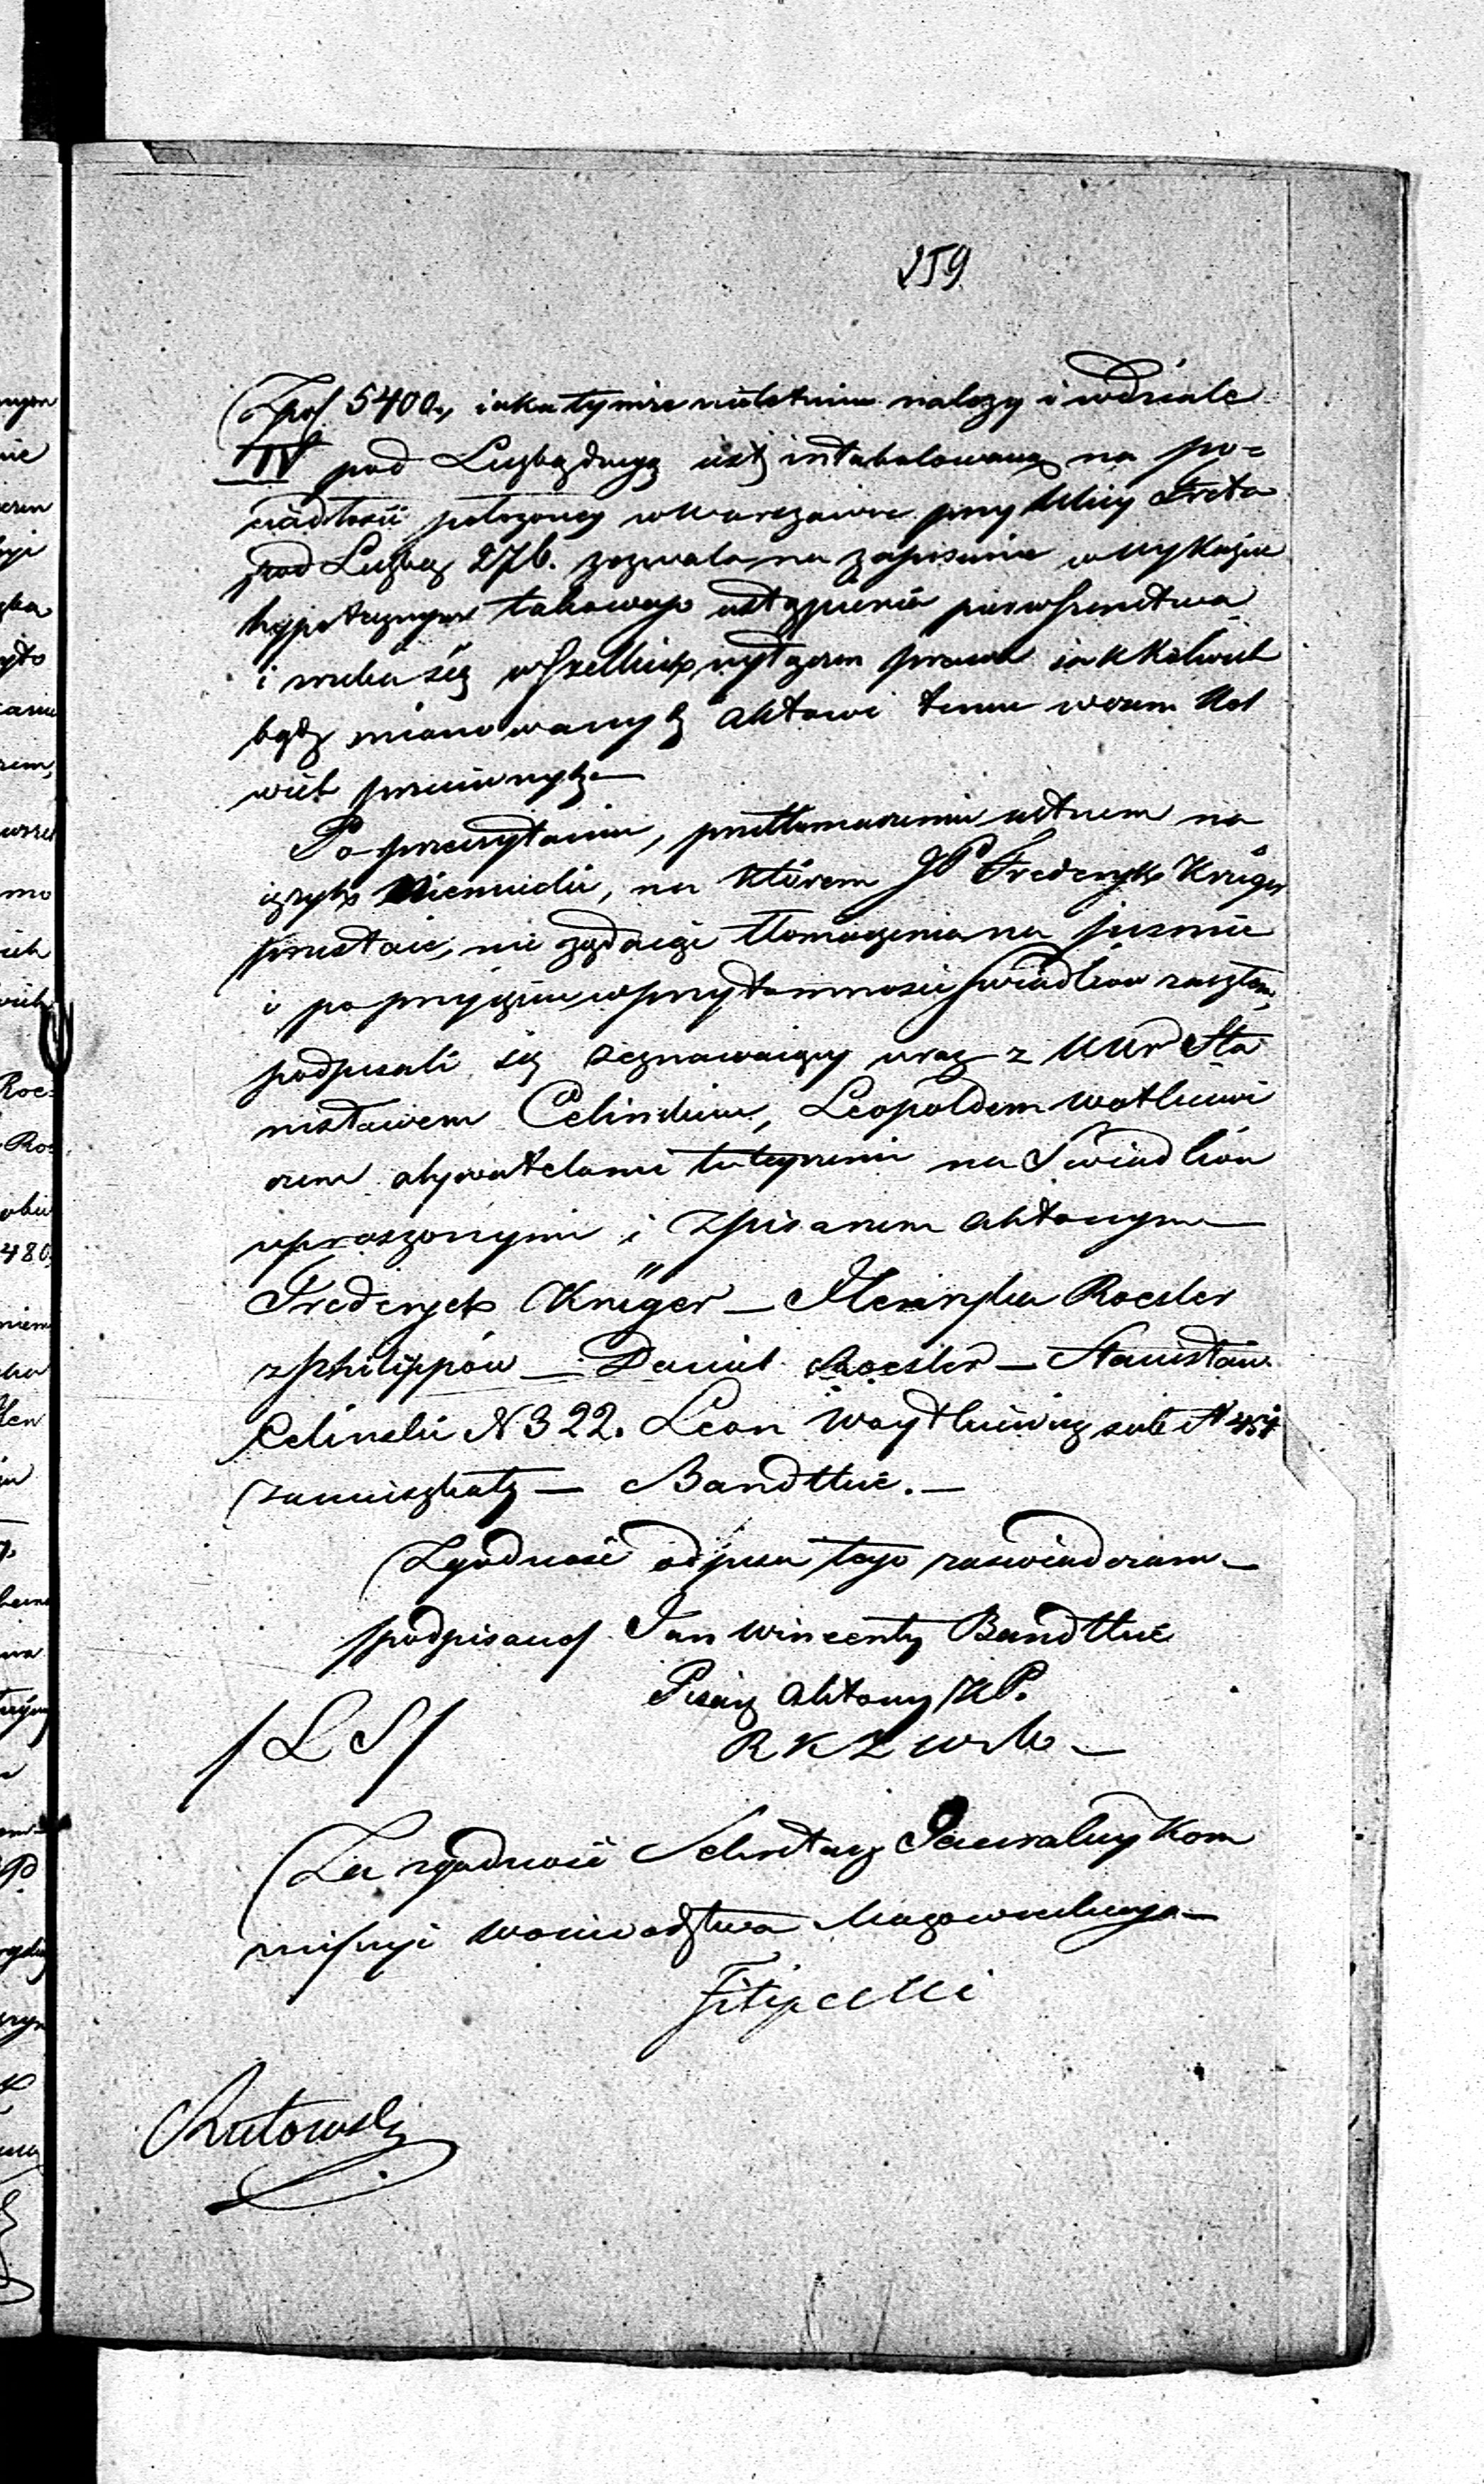 259
Zpol 5400, iaka tymże nieletnim należy i wdziale
IV pod Liczbą drugą iest intabulowaną na po=
siadłości położoney w Warszawie przy Ulicy Freta
pod Liczbą 276. zezwala na zapisanie w wykazie
hypotecznym takowego ustąpienia pierwszeństwa
i zrzeka się wszelkich wyłączeń prawa iakkolwiek
bądź mianowanych Aktowi temu w czem kol
wiek przeciwnych.—
Po przeczytaniu, przetłomaczeniu ustnem na
ięzyk Niemiecki, na którem JP Frederyk Krüger
przestaie, nie żądaiąc tłomaczenia na piśmie
i po przyięciu w przytomności świadków zeznań,
podpisali się zeznawaiący wraz z UUr Sta
nisławem Celińskim, Leopoldem Woytkiewi
czem obywatelami tuteyszemi na Świadków
uproszonymi i z pisarzem Aktowym —
Frederyck Krüger — Henryka Roesler
z Philippów — Daniel Roesler — Stanisław
Celinski N 322. Leon Woytkiewicz sub N 454
zamieszkały — Bandtkie. —
Zgodność odpisu tego zaswiadczam —
/podpisano/ Jan Wincenty Bandtkie
Pisarz Aktowy KP.
/LS/
Za zgodność Sekretarz Jeneralny Kom
missyi Woiewodztwa Mazowieckiego —
Filipecki
Rutowski